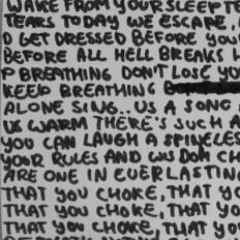 WAKE FROM YOUR SLEEP TE
TEARS TODAY WE ESCAPE,
D GET DRESSED BEFORE YOU
BEFORE ALL HELL BREAKS L
P BREATHING DON'T LOSE YO
KEEP BREATHING
ALONE SING.. US A SONG
US WARM THERE'S SUCH A
YOU CAN LAUGH A SPINELES
YOUR RULES AND WIS DOM CH
ARE ONE IN EVERLASTIN
THAT YOU CHOKE, THAT YO
THAT YOU CHOKE, THAT YO
THAT YOU CHOKE, THAT YO